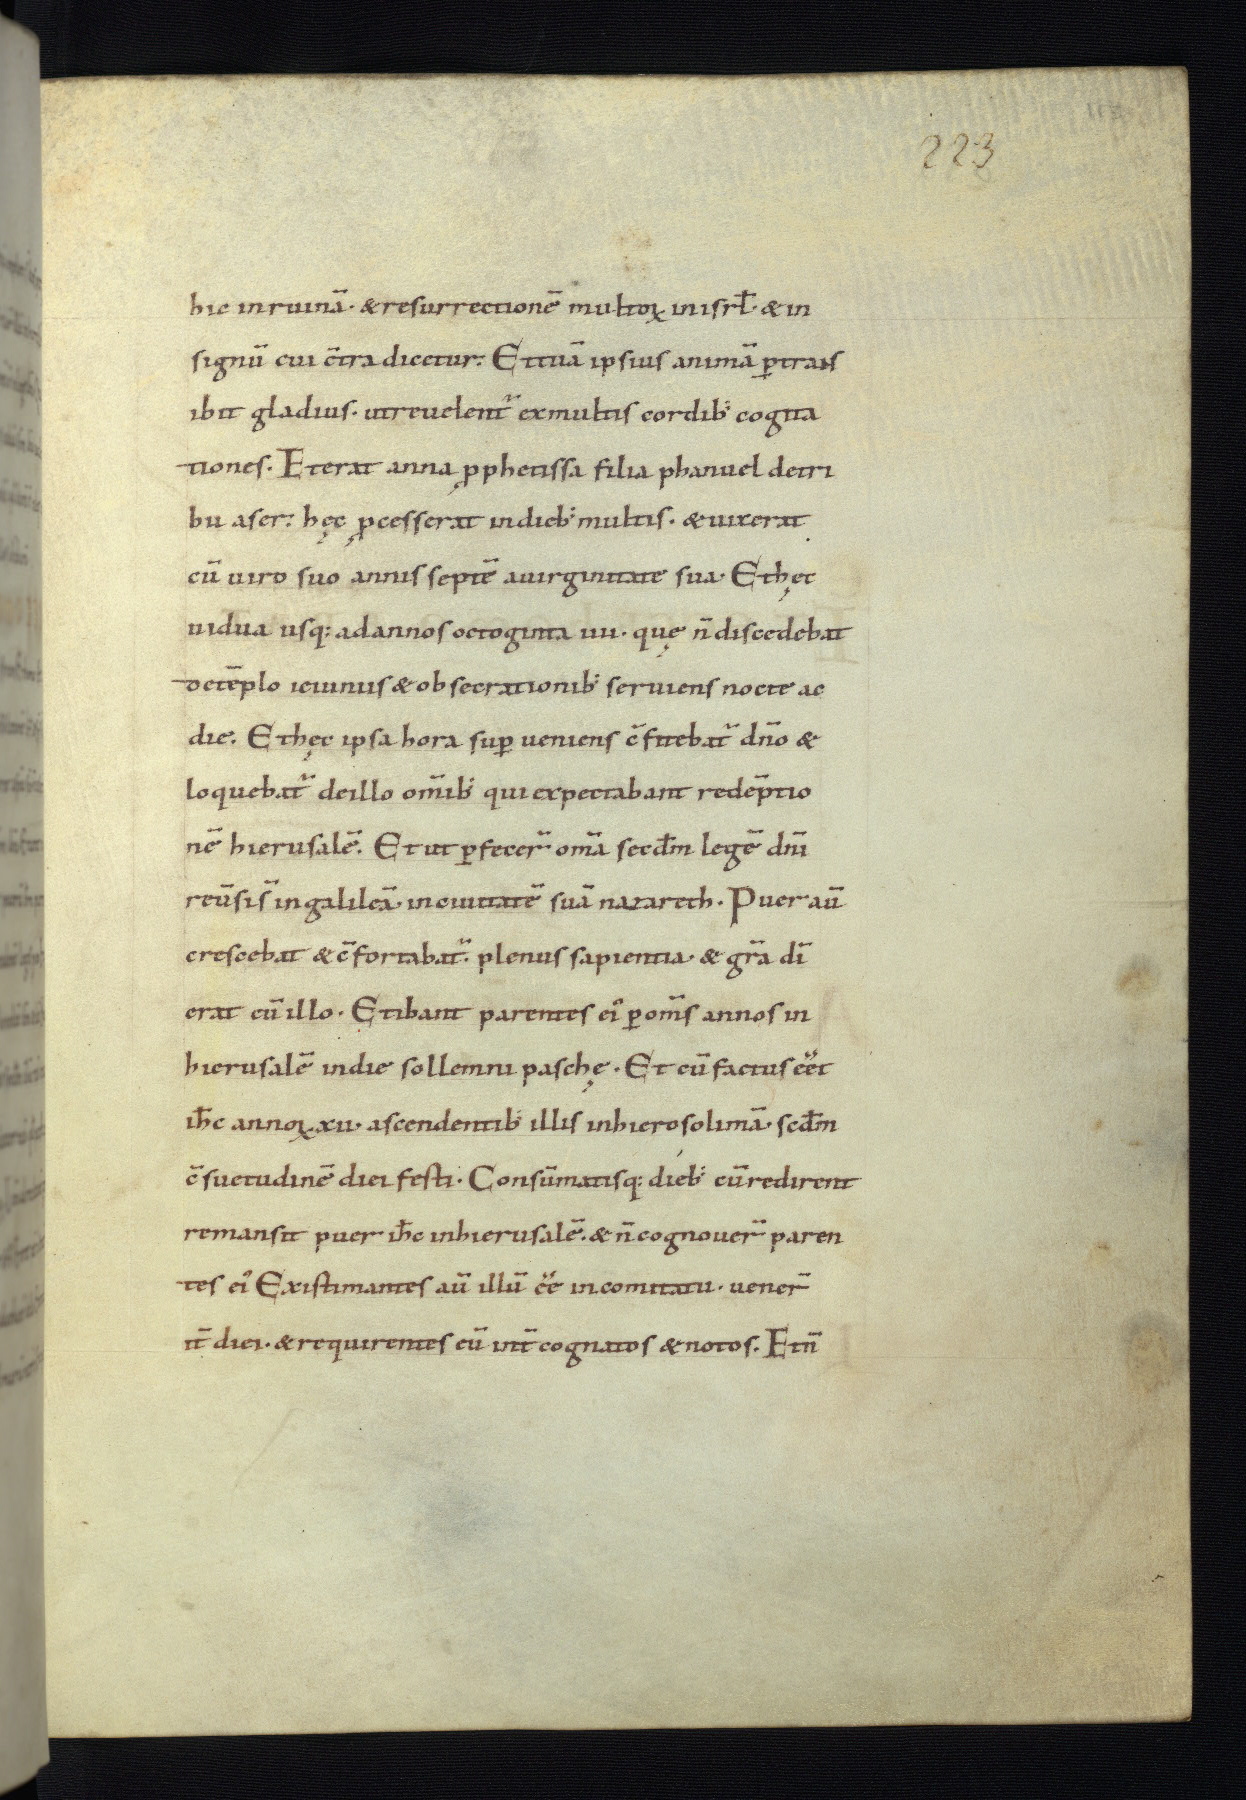 223
hic inruinā· &resurrectionē multoꝝ inisrl̄· &in
signū cui c̄tra dicetur: Ettuā ipsius animā ꝑtrans
ibit gladius· utreuelent᷑ exmultis cordib; cogita
tiones. Eterat anna ꝓphetissa filia phanuel detri
bu aser: hęc ꝓcesserat indieb; multis· &uixerat
cū uiro suo annis septē auirginitate sua· Ethęc
uidua usq; adannos octoginta iiii· quę n̄ discedebat
detēplo ieiuniis &obsecrationib; seruiens nocte ac
die. Ethęc ipsa hora suꝑ ueniens c̄fitebat᷑ dn̄o &
loquebat᷑ deillo om̄ib; qui expectabant redēptio
nē hierusalē. Et ut ꝑfecer̄ om̄a secd̄m legē dn̄i
reūsis̄ ingalileā· inciuitatē suā nazareth. Puer aū
crescebat &c̄fortabat᷑. plenus sapientia· & gr̄a dī
erat cū illo· Etibant parentes ei᷒ ꝑ om̄s annos in
hierusalē indie sollemni paschę· Et cū factus eēt
ih̄c annoꝝ xii· ascendentib; illis inhierosolimā· scd̄m
c̄suetudinē diei festi· Consūmatisq; dieb; cū redirent
remansit puer ih̄c inhierusalē. & n̄ cognouer̄ paren
tes ei᷒ Existimantes aū illū eē incomitatu· uener̄
it̄ diei· &requirentes eū int̄ cognatos &notos. Et n̄